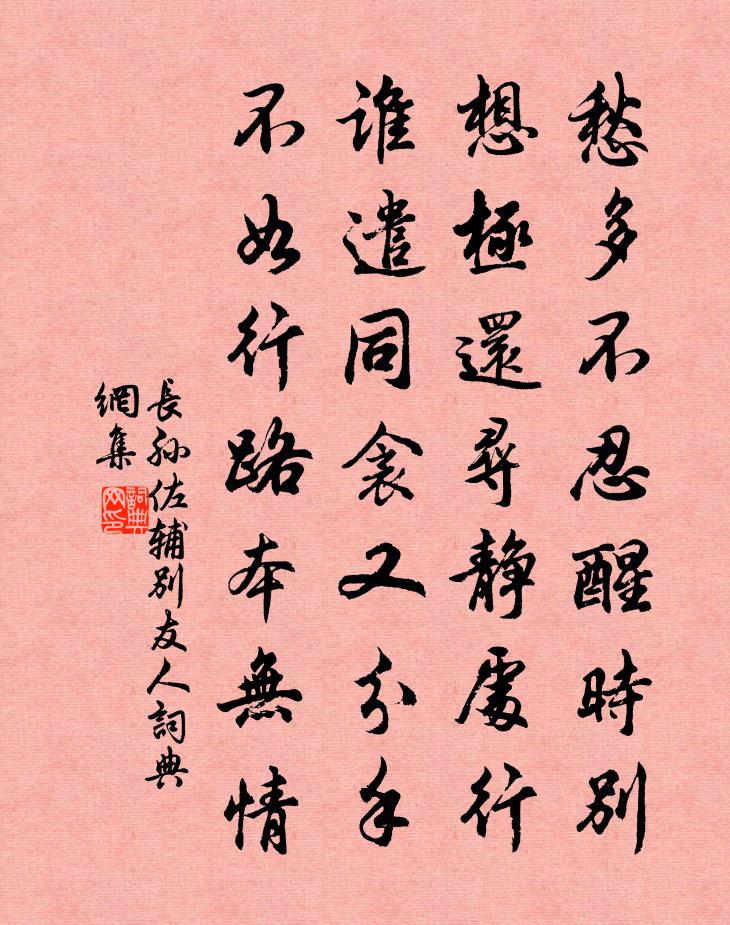 愁多不忍醒時別
想極還尋静處行
誰遣同衾又分手
不如行路本無情
長孫佐輔別友人詞典
網集
詞典
网印